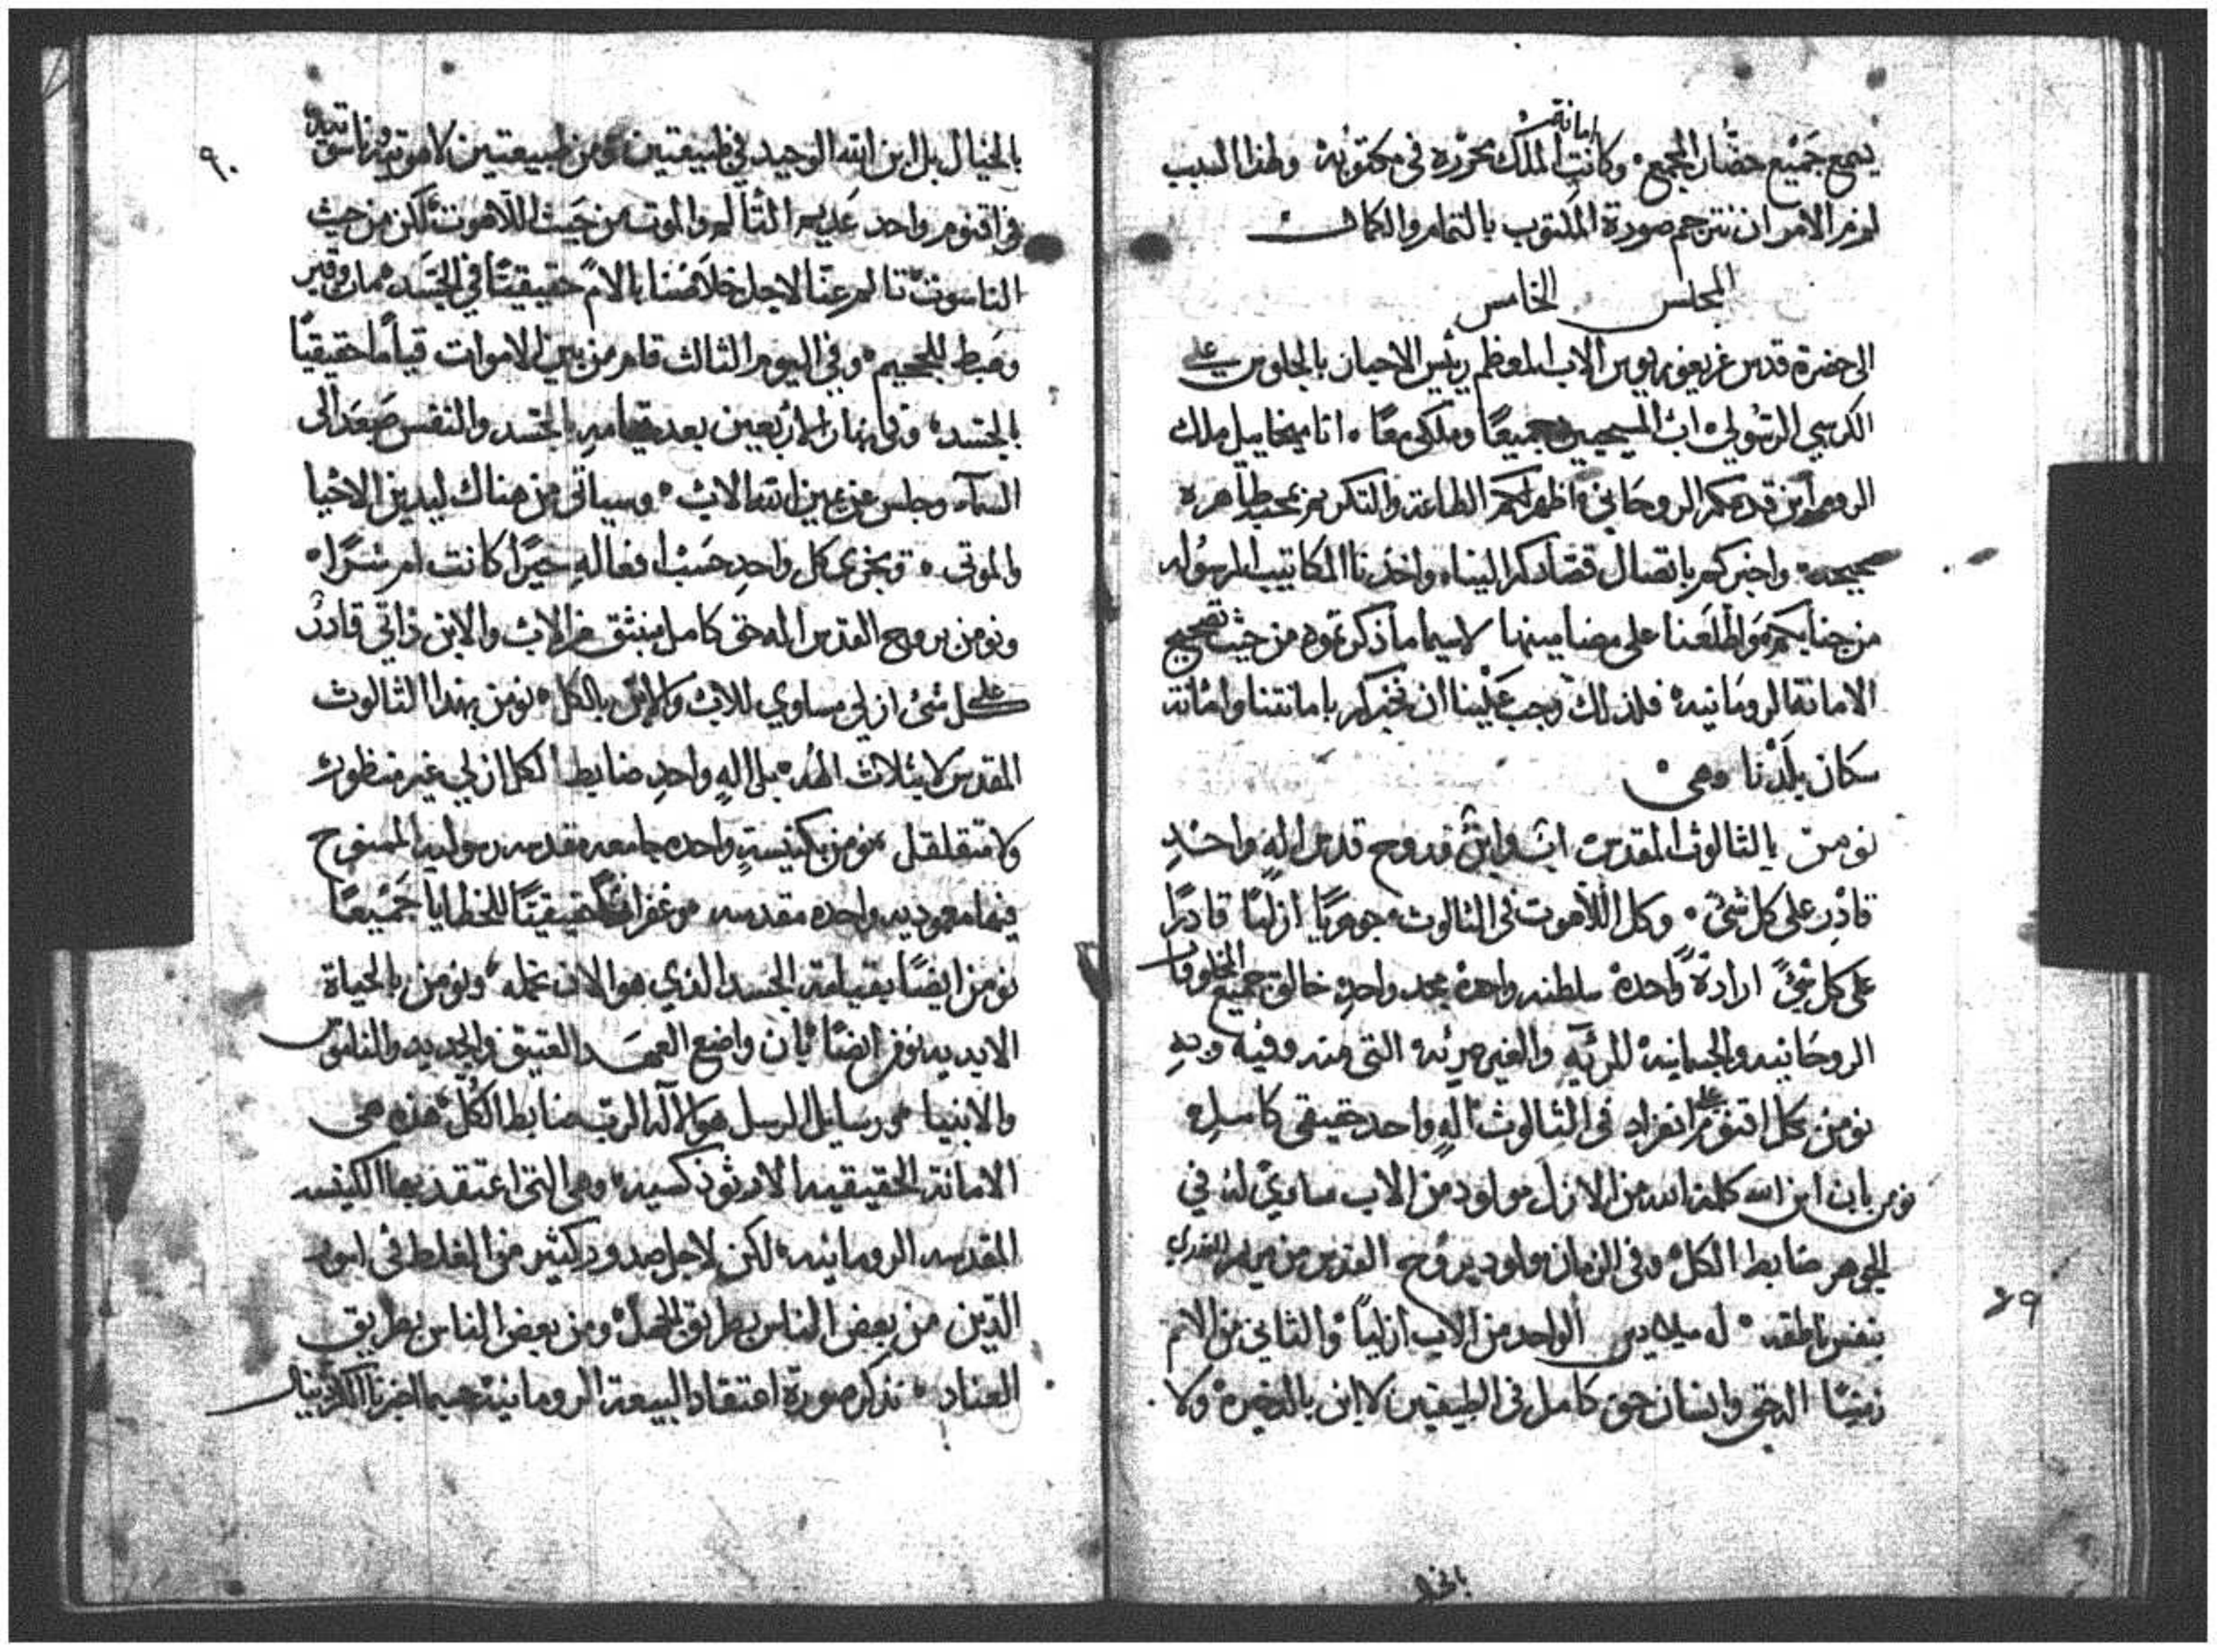 يسمع جميع حضار المجمع وكانت امانة الملك محررة في مكتوبه ولهذا السبب
لزم الامر ان نترجم صورة المكتوب بالتمام والكمال
المجلس الخامس
الى حضرة قدس غريغوريوس الاب المعظم رئيس الاحبار بالجلوس على
الكرسي الرسولي اب المسيحيين جميعًا وملكي معًا انا ميخاييل ملك
الروم ابن قدسكم الروحاني اظهر لكم الطاعة والتكريم بمحبة طاهره
صحيحه واخبركم باتصال قصادكم الينا واخذنا المكاتيب المرسوله
من جنابكم واطلعنا على مضامينها لاسيما ما ذكرتموه من حيث تصحيح
الامانة الرومانيه فلذلك وجب علينا ان نخبركم بامانتنا وامانة
سكان بلدنا وهي
نومن بالثالوث المقدس اب وابن وروح قدس اله واحد
قادر على كل شئ وكل اللاهوت في الثالوث جوهريًا ازليًا قادرًا
على كل شئ ارادة واحدة سلطنه واحدة مجد واحد خالق جميع المخلوقات
الروحانيه والجسمانيه المرئيه والغير مرئيه التي منه وفيه وبه
نومن بكل اقنوم على انفراد في الثالوث اله واحد حقيقي كامل
نومن بان ابن الله كلمة الله من الازل مولود من الاب مساوي له في
الجوهر ضابط الكل وفي الزمان مولود بروح القدس من مريم العذرى
بنفس ناطقه له ميلادين الواحد من الاب ازليًا والثاني من الام
زمنيًا اله حق وانسان حق كامل في الطبيعتين لا ابن بالذخيرة ولا
بالخيال
٨٩
٩٠
بالخيال بل ابن الله الوحيد في طبيعتين ومن طبيعتين لاهوتيه وناسوتيه
في اقنوم واحد عديم التألم والموت من حيث اللاهوت لكن من حيث
الناسوت تالم عنا لاجل خلاصنا بالام حقيقيًا في الجسد مات وقبر
وهبط للجحيم وفي اليوم الثالث قام من بين الاموات قيامًا حقيقيًا
بالجسد وفي نهار الاربعين بعد قيامه بالجسد والنفس صعد الى
السماء وجلس عن يمين الله الاب وسياتي من هناك ليدين الاحيا
والموتى ويجزى كل واحد حسب افعاله خيرًا كانت ام شرًا
ونومن بروح القدس اله حق كامل منبثق من الاب والابن ذاتي قادر
على كل شئ ازلي مساوي للاب والابن بالكل نومن بهذا الثالوث
المقدس لا بثلاث الهه بل اله واحد ضابط الكل ازلي غير منظور
ولا متقلقل نومن بكنيسة واحده جامعه مقدسه رسوليه الممنوح
فيها معموديه واحده مقدسه وغفرانًا حقيقيًا للخطايا جميعًا
نومن ايضًا بقيامة الجسد الذي هو الان نحمله ونومن بالحياة
الابديه نومن ايضًا بان واضع العهد العتيق والجديد والناموس
والانبيا ورسايل الرسل هو الاله الرب ضابط الكل هذه هي
الامانة الحقيقيه الارثوذكسيه وهي التي اعتقد بها الكنيسه
المقدسه الرومانيه لكن لاجل صدور كثير من الغلط في امور
الدين من بعض الناس بطريق الجهل ومن بعض الناس بطريق
العناد نذكر صورة اعتقاد البيعة الرومانيه حسبما اخبرنا الكردينال